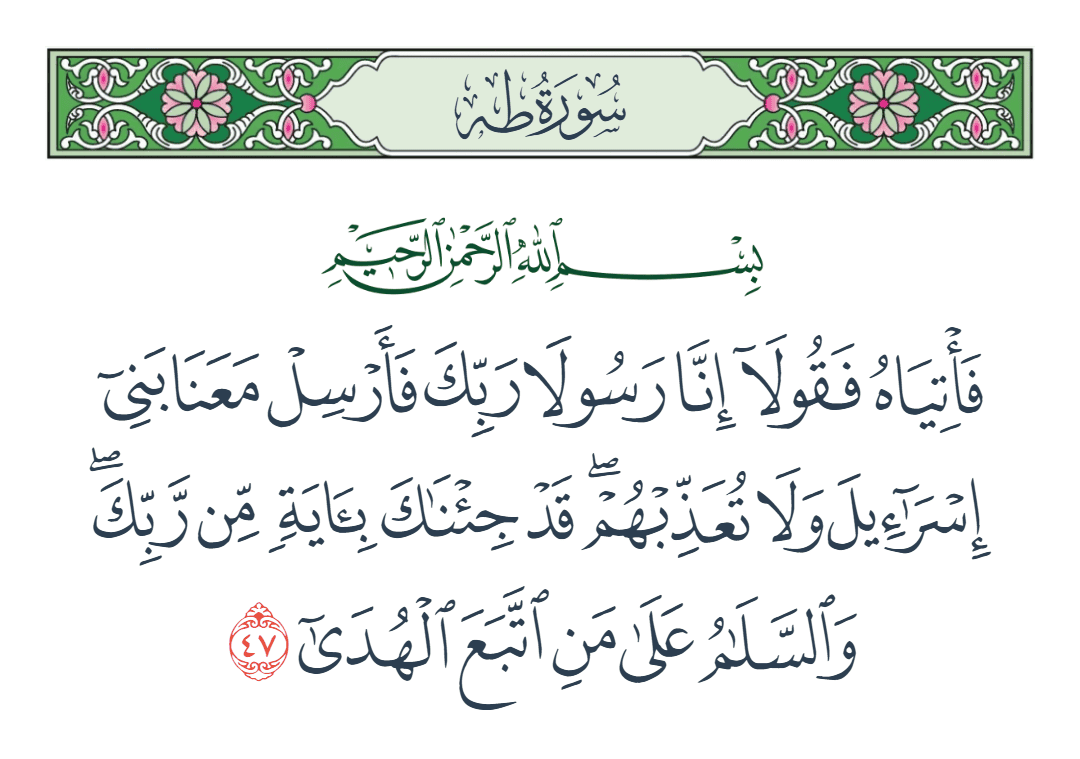 سُورَةُ طه
بِسْمِ ٱللَّهِ ٱلرَّحْمَٰنِ ٱلرَّحِيمِ
فَأْتِيَاهُ فَقُولَآ إِنَّا رَسُولَا رَبِّكَ فَأَرْسِلْ مَعَنَا بَنِىٓ
إِسْرَٰٓءِيلَ وَلَا تُعَذِّبْهُمْ ۖ قَدْ جِئْنَٰكَ بِـَٔايَةٍ مِّن رَّبِّكَ ۖ
وَٱلسَّلَٰمُ عَلَىٰ مَنِ ٱتَّبَعَ ٱلْهُدَىٰٓ ٤٧